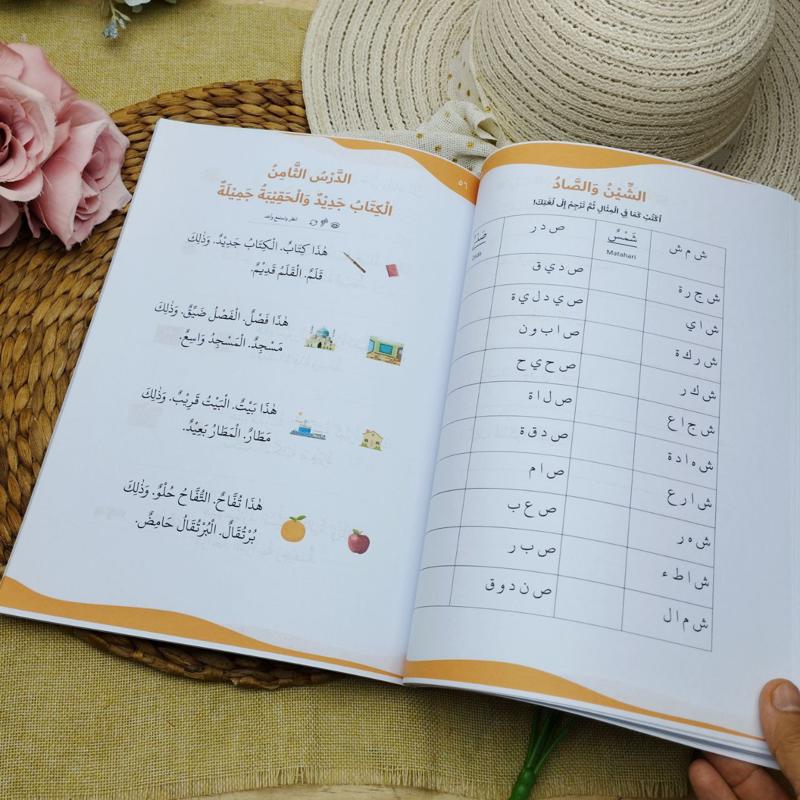 الشِّيْنُ وَالصَّادُ
أُكْتُبْ كَمَا فِي الْمِثَالِ ثُمَّ تَرْجِمْ إِلَى لُغَتِكَ!
ش م ش شَمْسٌ ص د ر
Matahari
ش ج ر ة ص د ي ق
ش ا ي ص ي د ل ي ة
ش ر ك ة ص ا ب و ن
ش ك ر ص ح ي ح
ش ج ا ع ص ل ا ة
ش ه ا د ة ص د ق ة
ش ا ر ع ص ا م
ش ه ر ص ع ب
ش ا ط ء ص ب ر
ش م ا ل ص ن د و ق
٥٦
الدَّرْسُ الثَّامِنُ
الْكِتَابُ جَدِيْدٌ وَالْحَقِيْبَةُ جَمِيْلَةٌ
انظر واستمع وأعد
هٰذَا كِتَابٌ. الْكِتَابُ جَدِيْدٌ. وَذٰلِكَ
قَلَمٌ. الْقَلَمُ قَدِيْمٌ.
هٰذَا فَصْلٌ. الْفَصْلُ ضَيِّقٌ. وَذٰلِكَ
مَسْجِدٌ. الْمَسْجِدُ وَاسِعٌ.
هٰذَا بَيْتٌ. الْبَيْتُ قَرِيْبٌ. وَذٰلِكَ
مَطَارٌ. الْمَطَارُ بَعِيْدٌ.
هٰذَا تُفَّاحٌ. التُّفَّاحُ حُلْوٌ. وَذٰلِكَ
بُرْتُقَالٌ. الْبُرْتُقَالُ حَامِضٌ.